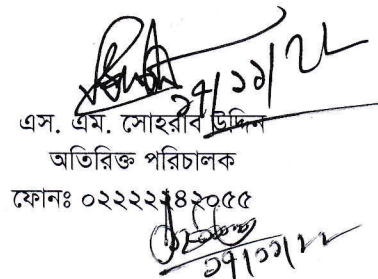 ১৭/১১/২২
এস. এম. সোহরাব উদ্দিন
অতিরিক্ত পরিচালক
ফোনঃ ০২২২২২৪২০৫৫
১৭/১১/২২